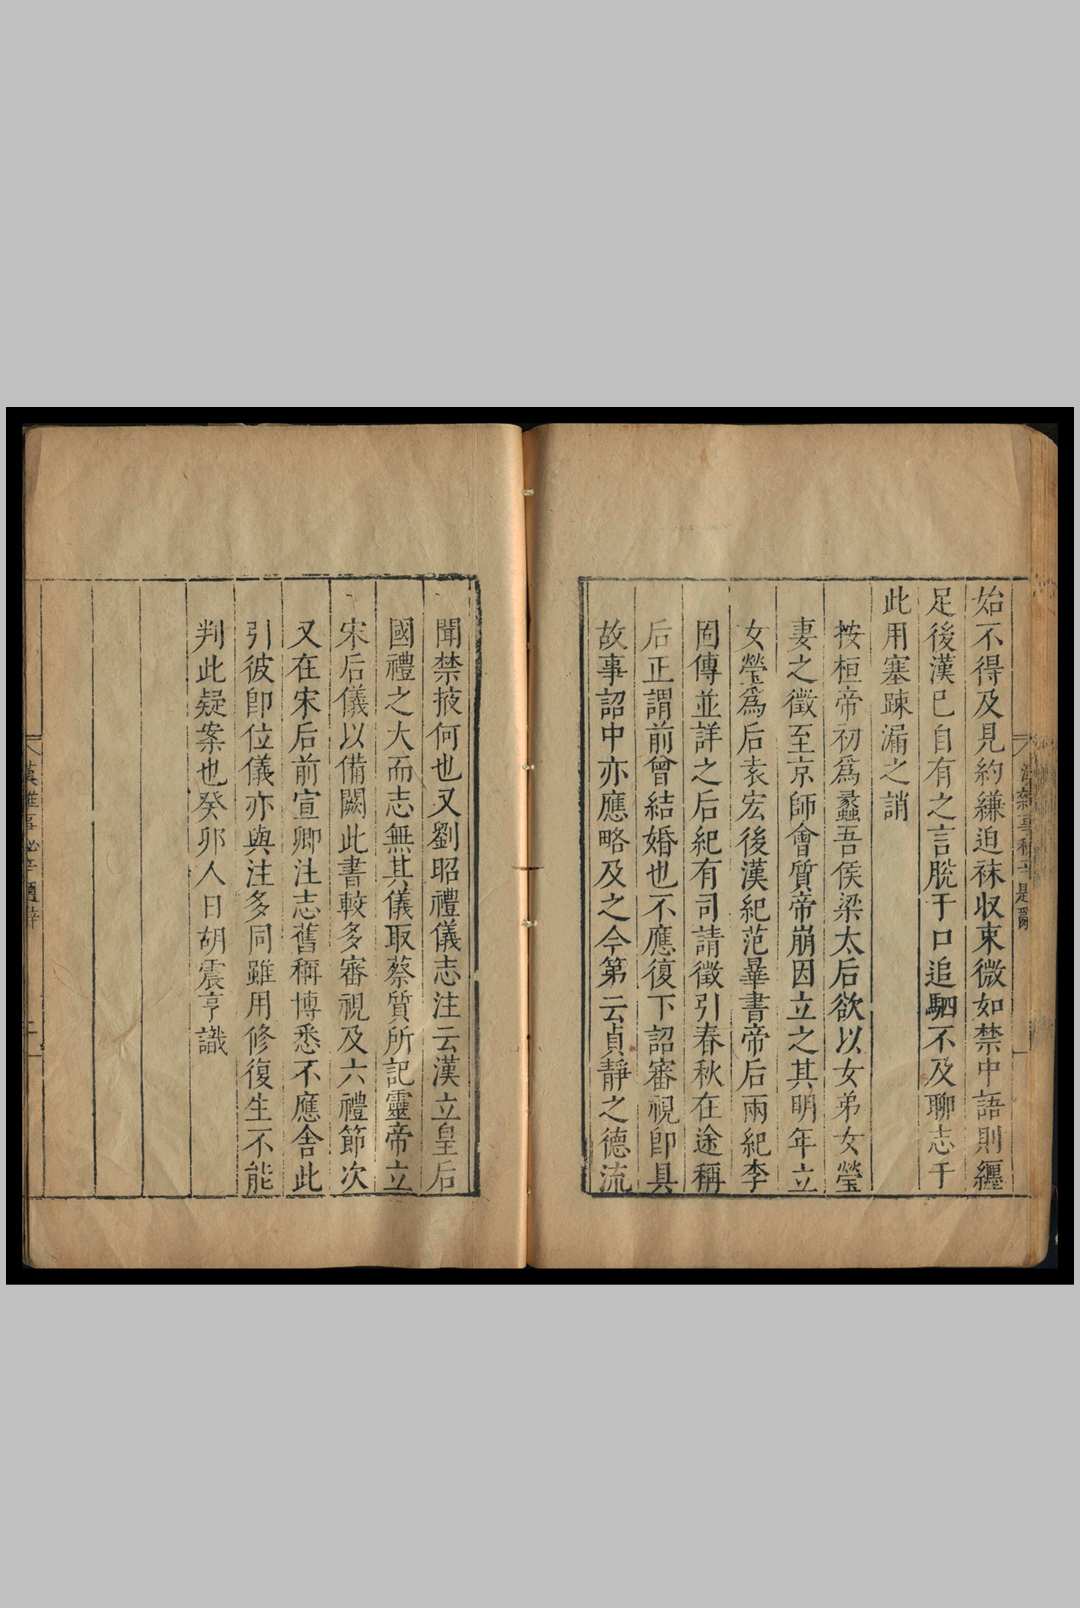 始不得及見約縑迫袜収束微如禁中語則纒
足後漢已自有之言脫于口追駟不及聊志于
此用塞踈漏之誚
按桓帝初爲蠡吾侯梁太后欲以女弟女瑩
妻之徵至京師會質帝崩因立之其明年立
女瑩爲后袁宏後漢紀范曅書帝后兩紀李
固傳並詳之后紀有司請徵引春秋在途稱
后正謂前曾結婚也不應復下詔審視卽具
故事詔中亦應略及之今第云貞靜之德流
聞禁掖何也又劉昭禮儀志注云漢立皇后
國禮之大而志無其儀取蔡質所記靈帝立
宋后儀以備闕此書較多審視及六禮節次
又在宋后前宣卿注志舊稱博悉不應舍此
引彼卽位儀亦與注多同雖用修復生不能
判此疑案也癸卯人日胡震亨識
漢雜事祕辛題辭